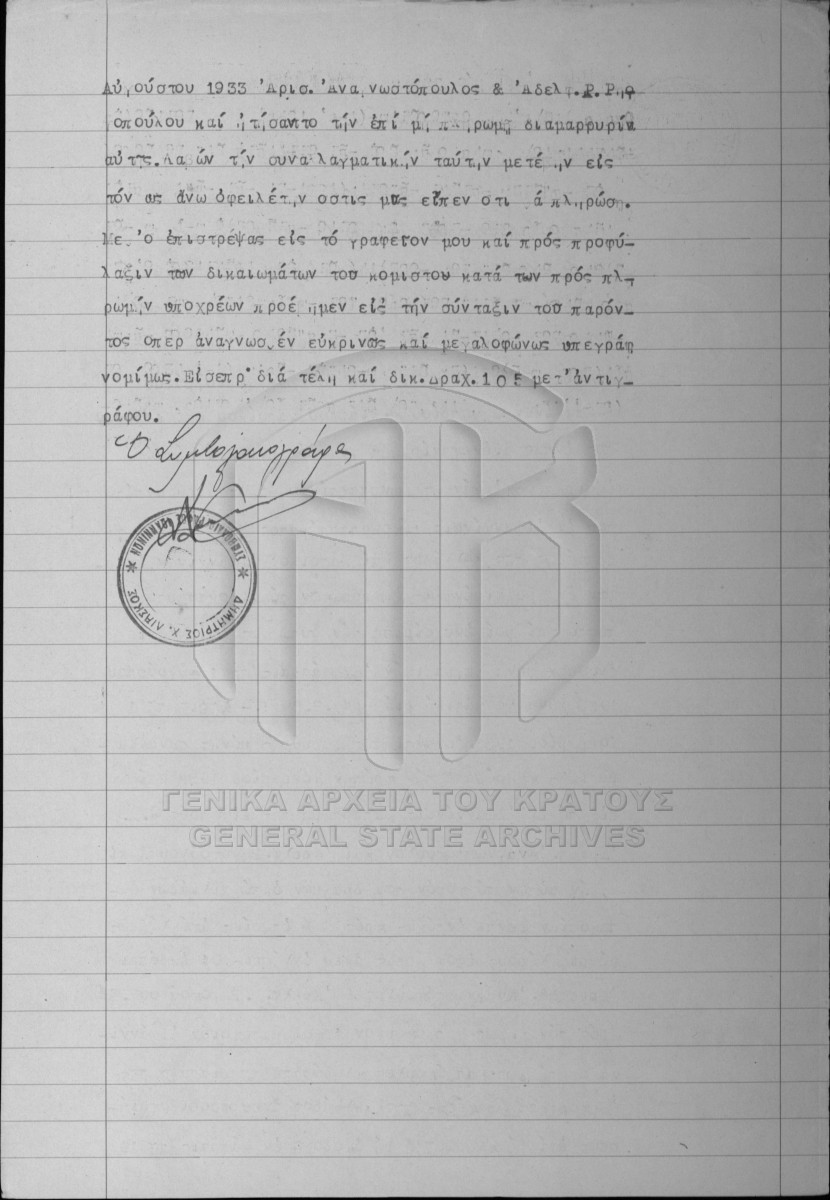 Αὐγούστου 1933 Ἀρισ. Ἀναγνωστόπουλος & Ἀδελφ. Ρ. Ρηγο
οπούλου καί ᾐτήσαντο τήν ἐπί μή πληρωμῇ διαμαρτυρίαν
αὐτῆς. Λαβών τήν συναλλαγματικήν ταύτην μετέβην εἰς
τόν ὡς ἄνω ὀφειλέτην ὅστις μᾶς εἶπεν ὅτι θά πληρώσῃ.
Μεθ' ὅ ἐπιστρέψας εἰς τό γραφεῖον μου καί πρός προφύ-
λαξιν των δικαιωμάτων του κομιστου κατά των πρός πλη
ρωμήν υποχρέων προέβημεν εἰς τήν σύνταξιν του παρόν-
τος οπερ ἀναγνωσθέν εὐκρινῶς καί μεγαλοφώνως υπεγράφη
νομίμως. Εἰσεπρ. διά τέλη καί δικ. Δραχ. 105 μετ' ἀντιγ-
ράφου.
Ὁ Συμβολαιογράφος
* ΔΗΜΗΤΡΙΟΣ Χ. ΛΙΑΣΚΟΣ *
ΓΕΝΙΚΑ ΑΡΧΕΙΑ ΤΟΥ ΚΡΑΤΟΥΣ
GENERAL STATE ARCHIVES